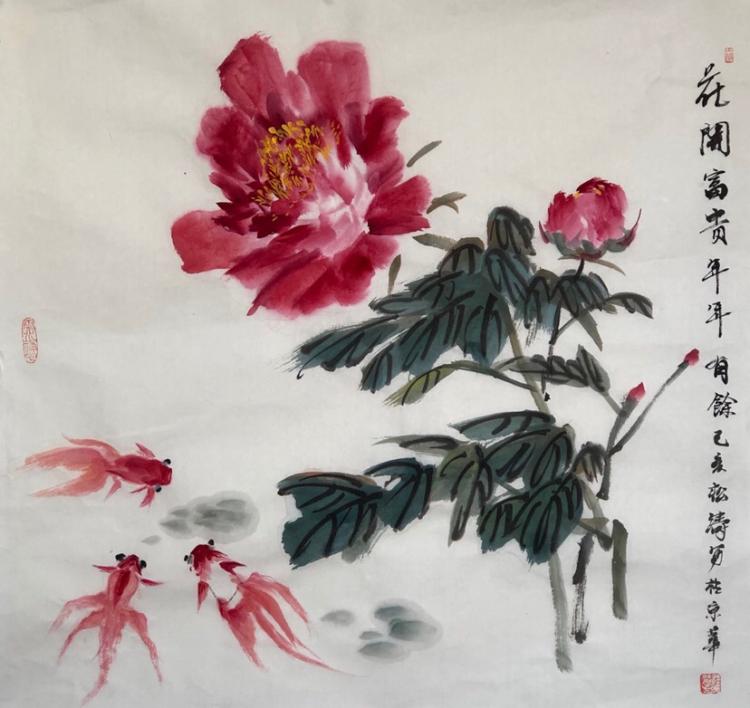 花開富貴年年有餘己亥松濤写於京華